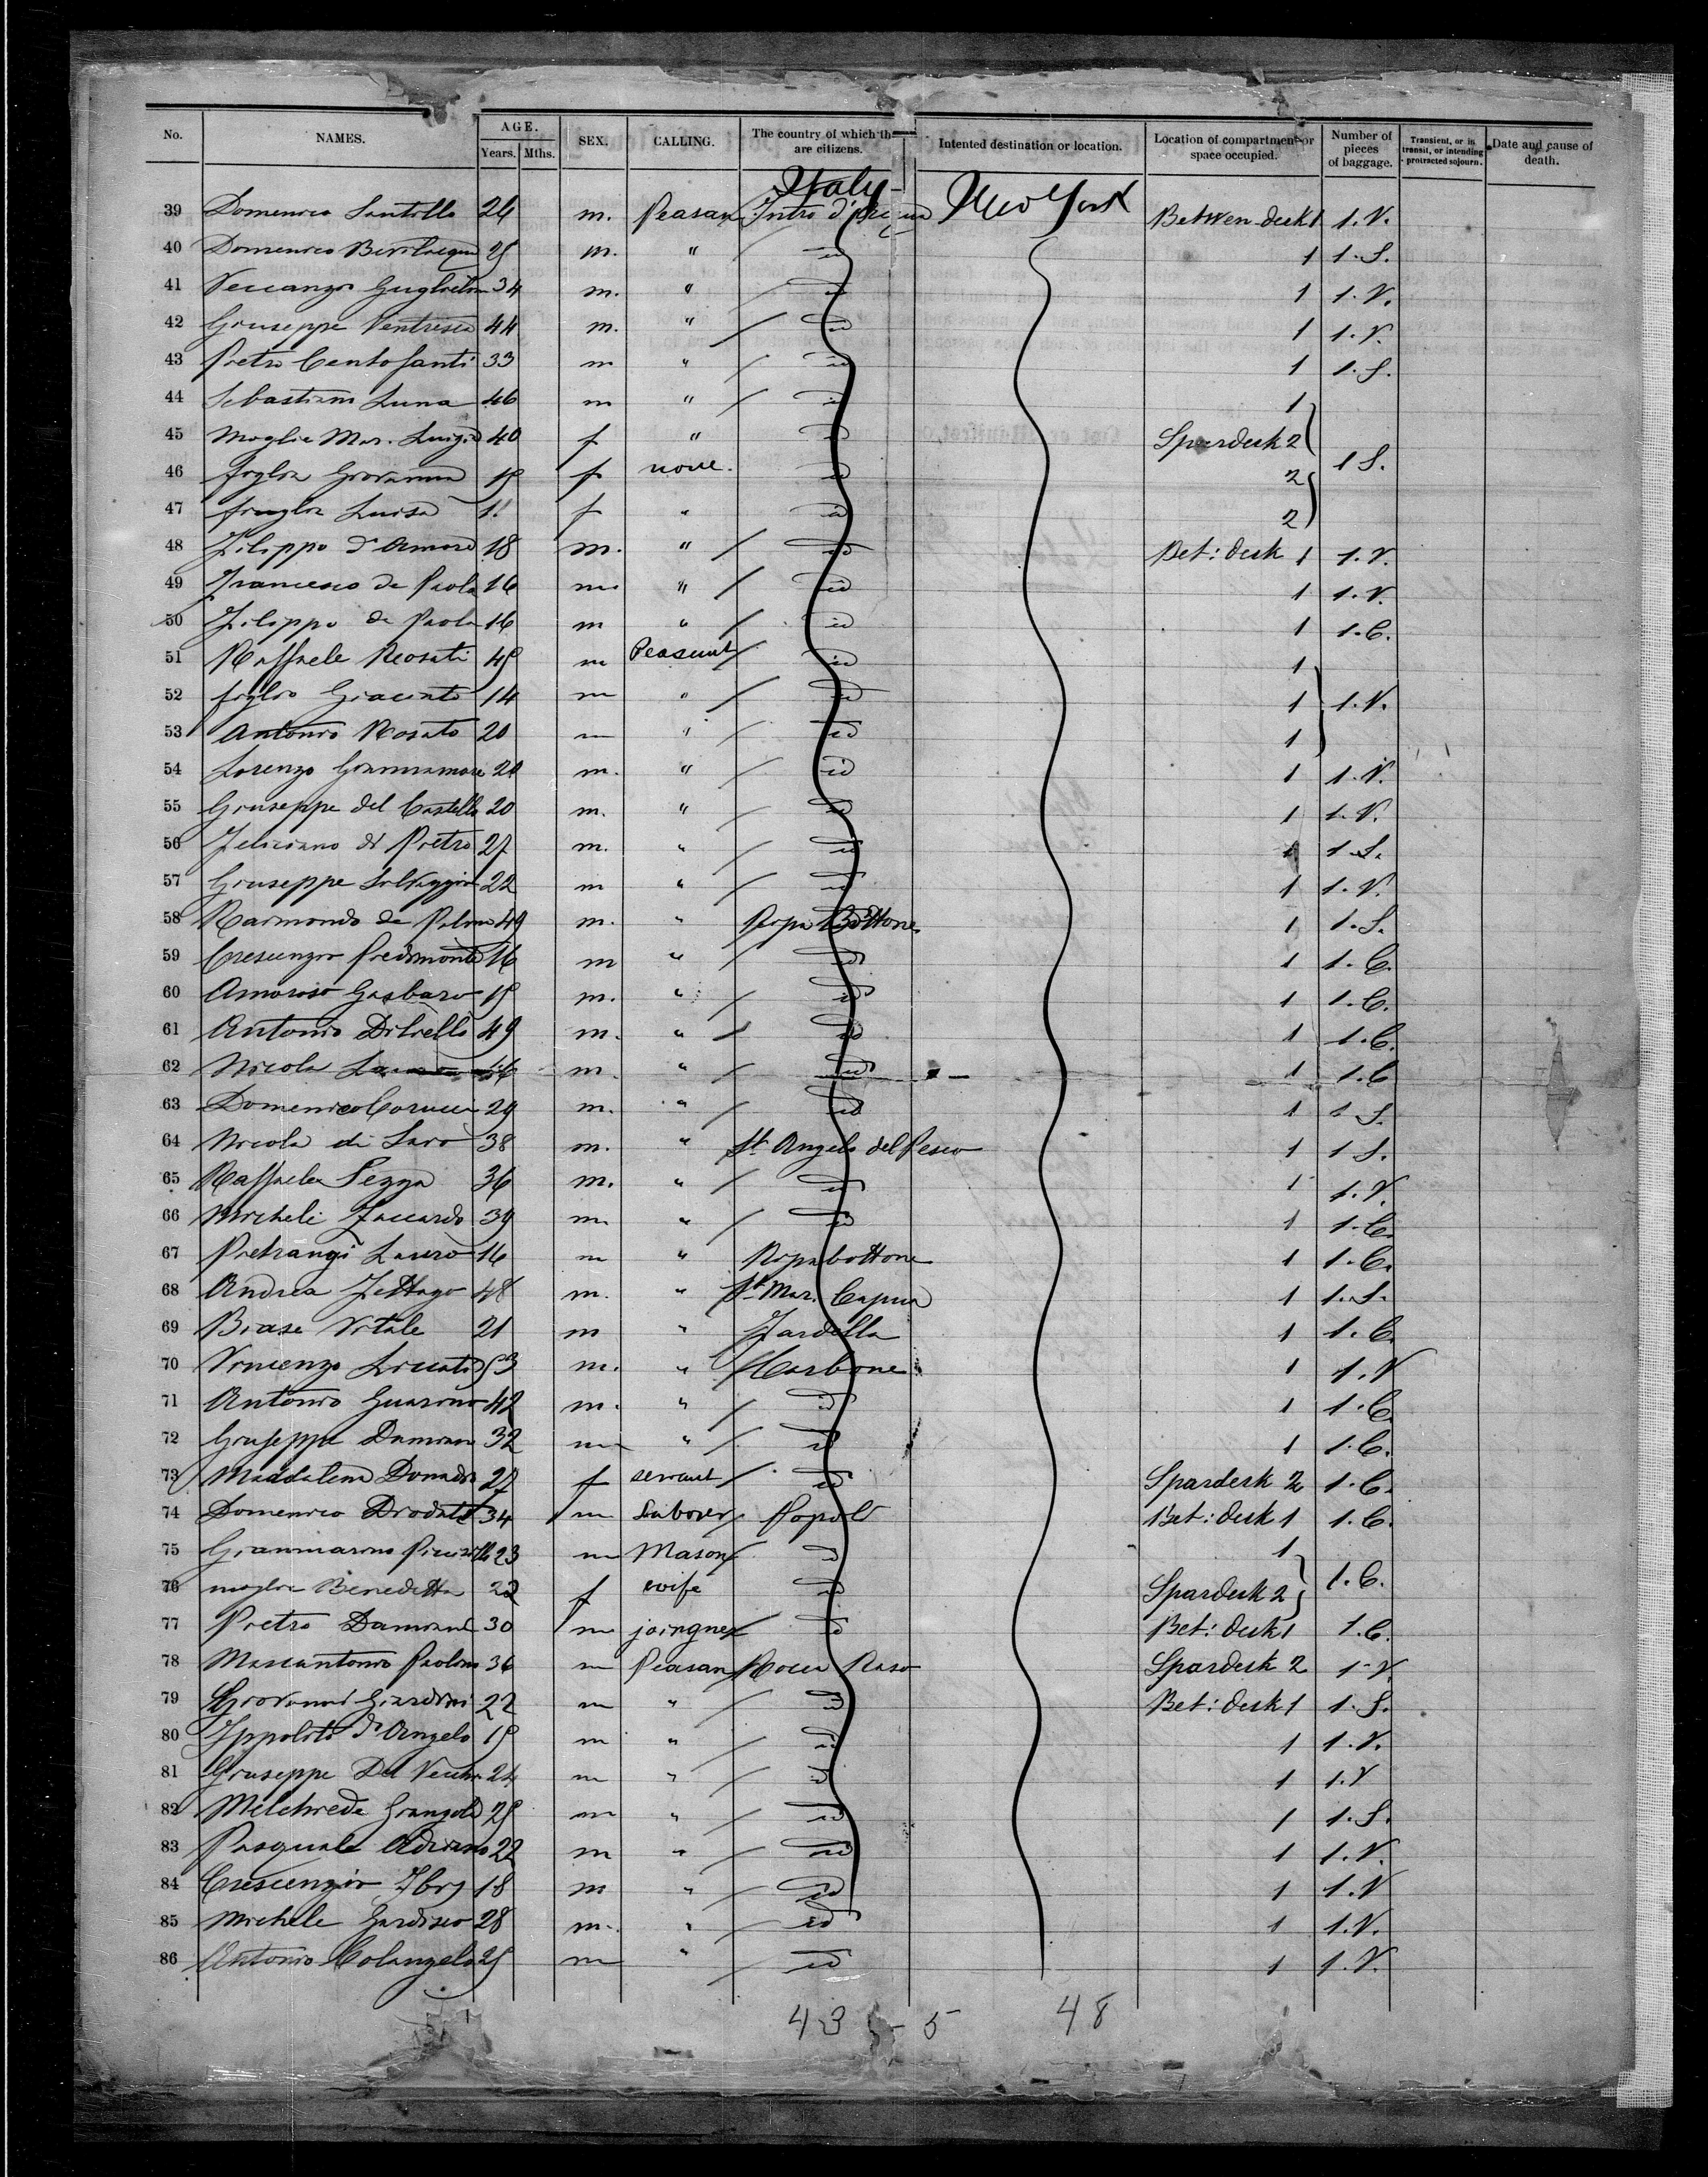 No. NAMES. AGE. Years. Mths. SEX. CALLING. The country of which th are citizens. Intended destination or location. Location of compartment or space occupied. Number of pieces of baggage. Transient, or in transit, or intending protracted sojourn. Date and cause of death.
Italy
39 Domenico Santillo 26 m. Peasan New York Between deck 1 1. V.
40 Domenico Bevilacqua 25 m. " id 1 1. S.
41 34 m. " id 1 1. V.
42 Giuseppe Ventresca 44 m. " id 1 1. V.
43 Pietro Centofanti 33 m " id 1 1. S.
44 Sebastiano Luna 46 m " id 1
45 Moglie Mar. Luigia 40 f " id Spardeck 2
46 figlia Giovanna 15 f none. id 2 1 S.
47 figlia Luisa f " id 2
48 Filippo d'Amore 18 m. " id Bet: deck 1 1. V.
49 Francesco de Paola 16 m " id 1 1. V.
50 Filippo de Paola 16 m " id 1 1. C.
51 Raffaele Rosati 45 m Peasant id 1
52 figlio Giacinto 14 m " id 1 1. V.
53 Antonio Rosato 20 m " id 1
54 Lorenzo Giannamore 20 m. " id 1 1. V.
55 Giuseppe del Castello 20 m. " id 1 1. V.
56 Feliciano di Pietro 27 m. " id 1 1 S.
57 Giuseppe Selvaggio 22 m " id 1 1. V.
58 Raimondo de Palma 49 m. " Ripa Bottone 1 1. S.
59 Crescenzo Piedimonte 16 m " id 1 1. C.
60 Amoroso Gasbaro 15 m. " id 1 1. C.
61 Antonio 49 m. " id 1 1. C.
62 Nicola m. " id 1 1. C
63 Domenico Carucci 29 m. " id 1 1 S.
64 Nicola di Saro 38 m. " St. Angelo del Pesco 1 1 S.
65 Raffaele Sezza 36 m. " id 1 1. V.
66 Micheli Zaccardo 39 m. " id 1 1. C.
67 Pietrangi Lauro 16 m " Ripabottone 1 1. C.
68 Andrea 48 m. " St. Mar. Capua 1 1. S.
69 Biase Vitale 21 m " Fardella 1 1. C.
70 Vincenzo 53 m. " Carbone 1 1. V
71 Antonio Guarino 42 m. " id 1 1. C.
72 Giuseppe Damiano 32 m " id 1 1. C.
73 Maddalena Donadio 27 f servant id Spardeck 2 1. C.
74 Domenico Diodati 34 m Labourer Popoli Bet: deck 1 1. C.
75 Gianmarino 23 m Mason id 1
76 moglie Benedetta 22 f wife id Spardeck 2 1. C.
77 Pietro Damiani 30 m joigner id Bet: deck 1 1. C.
78 Mascantonio Paolino 36 m Peasan Rocca Raso Spardeck 2 1 V
79 Giovanni Giardini 22 m " id Bet: deck 1 1. S.
80 Ippolito d'Angelo 15 m " id 1 1. V.
81 Giuseppe Del Vecchio 24 m " id 1 1. V
82 25 m " id 1 1. S.
83 Pasquale Adriano 22 m " id 1 1. V.
84 Crescenzio 18 m " id 1 1. V
85 Michele 28 m. " id 1 1. V.
86 Antonio Colangelo 25 m " id 1 1. V.
43 - 5 48